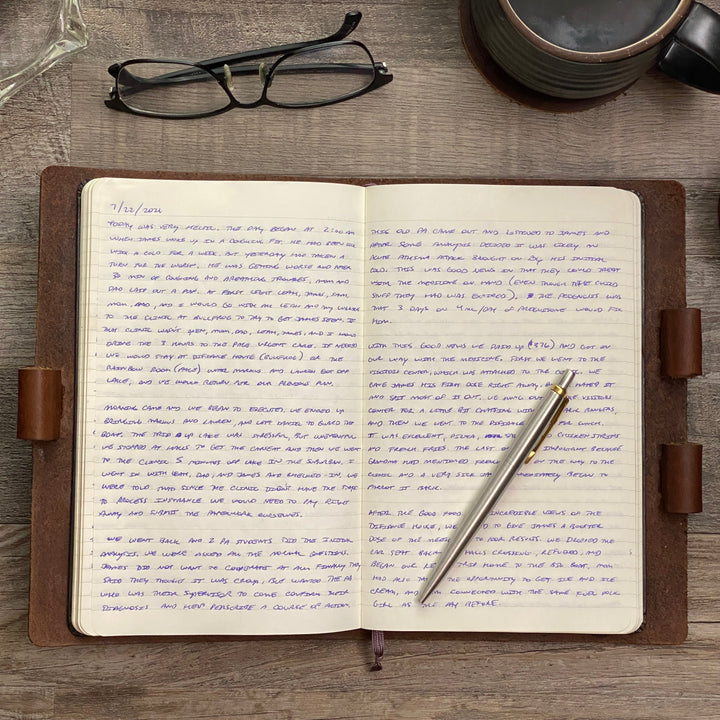 7/22/2021
TODAY WAS VERY HECTIC. THE DAY BEGAN AT 2:00 AM
WHEN JAMES WOKE UP IN A COUGHING FIT. HE HAD BEEN SICK
WITH A COLD FOR A WEEK, BUT YESTERDAY HAD TAKEN A
TURN FOR THE WORST. HE WAS GETTING WORSE AND AFTER
30 MIN OF COUGHING AND BREATHING TROUBLES, MOM AND
DAD LAID OUT A PLAN. AT FIRST LIGHT LEAH, JAMES, SAM,
MOM, DAD, AND I WOULD GO WITH ALL LEAH AND MY
TO THE CLINIC AT BULLFROG TO TRY TO GET JAMES SEEN. IF
THAT CLINIC WASN'T OPEN, MOM, DAD, LEAH, JAMES, AND I WOULD
DRIVE THE 3 HOURS TO THE PAGE URGENT CARE. IF NEEDED
WE WOULD STAY AT DEFIANCE HOUSE (BULLFROG) OR THE
RAINBOW ROOM (PAGE) UNTIL MARCUS AND LAUREN GOT OFF
LAKE, AND WE WOULD RETURN FOR OUR PERSONS
MORNING CAME AND WE BEGAN TO EXECUTE. WE ENDED UP
BRINGING MARCUS AND LAUREN, AND LEFT TO GUARD THE
BOAT. THE TRIP UP LAKE WAS STRESSFUL, BUT UNEVENTFUL
WE STOPPED AT HALLS TO GET THE CAR AND THEN WE WENT
TO THE CLINIC 5 MINUTES OFF LAKE IN THE SUBURBAN, I
WENT IN WITH LEAH, DAD, AND JAMES AND CHECKED IN. WE
WERE TOLD THAT SINCE THE CLINIC DIDN'T HAVE THE
TO PROCESS INSURANCE WE WOULD NEED TO PAY RIGHT
AWAY AND SUBMIT THE PAPERWORK OURSELVES.
WE WENT BACK AND 2 PA STUDENTS DID THE INITIAL
ANALYSIS. WE WERE ASKED ALL THE NORMAL QUESTIONS.
JAMES DID NOT WANT TO COOPERATE AT ALL. FINALLY THEY
SAID THEY THOUGHT IT WAS CROUP, BUT WANTED THE PA
WHO WAS THEIR SUPERVISOR TO COME CONFIRM THEIR
DIAGNOSIS AND HELP PRESCRIBE A COURSE OF ACTION.
THIS OLD PA CAME OUT AND LISTENED TO JAMES AND
AFTER SOME ANALYSIS DECIDED IT WAS LIKELY AN
ACUTE ASTHMA ATTACK BROUGHT ON BY HIS INITIAL
COLD. THIS WAS GOOD NEWS IN THAT THEY COULD TREAT
WITH THE MEDICINE ON HAND (EVEN THOUGH THE CHILD
STUFF THEY HAD WAS EXPIRED). THE PROGNOSIS WAS
THAT 3 DAYS ON 4 ML/DAY OF PREDNISONE WOULD FIX
HIM.
WITH THIS GOOD NEWS WE PAID UP ($76) AND GOT ON
OUR WAY WITH THE MEDICINE. FIRST WE WENT TO THE
VISITORS CENTER, WHICH WAS ATTACHED TO THE
GAVE JAMES HIS FIRST DOSE RIGHT AWAY. HATED IT
AND SPIT MOST OF IT OUT. WE HUNG OUT VISITORS
CENTER FOR A LITTLE BIT CHATTING WITH RANGERS,
AND THEN WE WENT TO THE DEFIANCE FOR LUNCH.
IT WAS EXCELLENT, PIZZA, CHICKEN STRIPS
AND FRENCH FRIES. THE LAST IMPORTANT BECAUSE
GRANDMA HAD MENTIONED FRENCH ON THE WAY TO THE
CLINIC AND A VERY SICK IMMEDIATELY BEGAN TO
PARROT IT BACK.
AFTER THE GOOD FOOD INCREDIBLE VIEWS OF THE
DEFIANCE HOUSE, WE TO GIVE JAMES A BOOSTER
DOSE OF THE TO POOR RESULTS. WE DROVE THE
CAR BACK HALLS CROSSING, REFUELED, AND
BEGAN OUR TRIP HOME TO THE BIG BOAT, MOM
HAD ALSO THE OPPORTUNITY TO GET ICE AND ICE
CREAM, AND CONNECTED WITH THE SAME FUEL DOCK
GIRL AS THE DAY BEFORE.